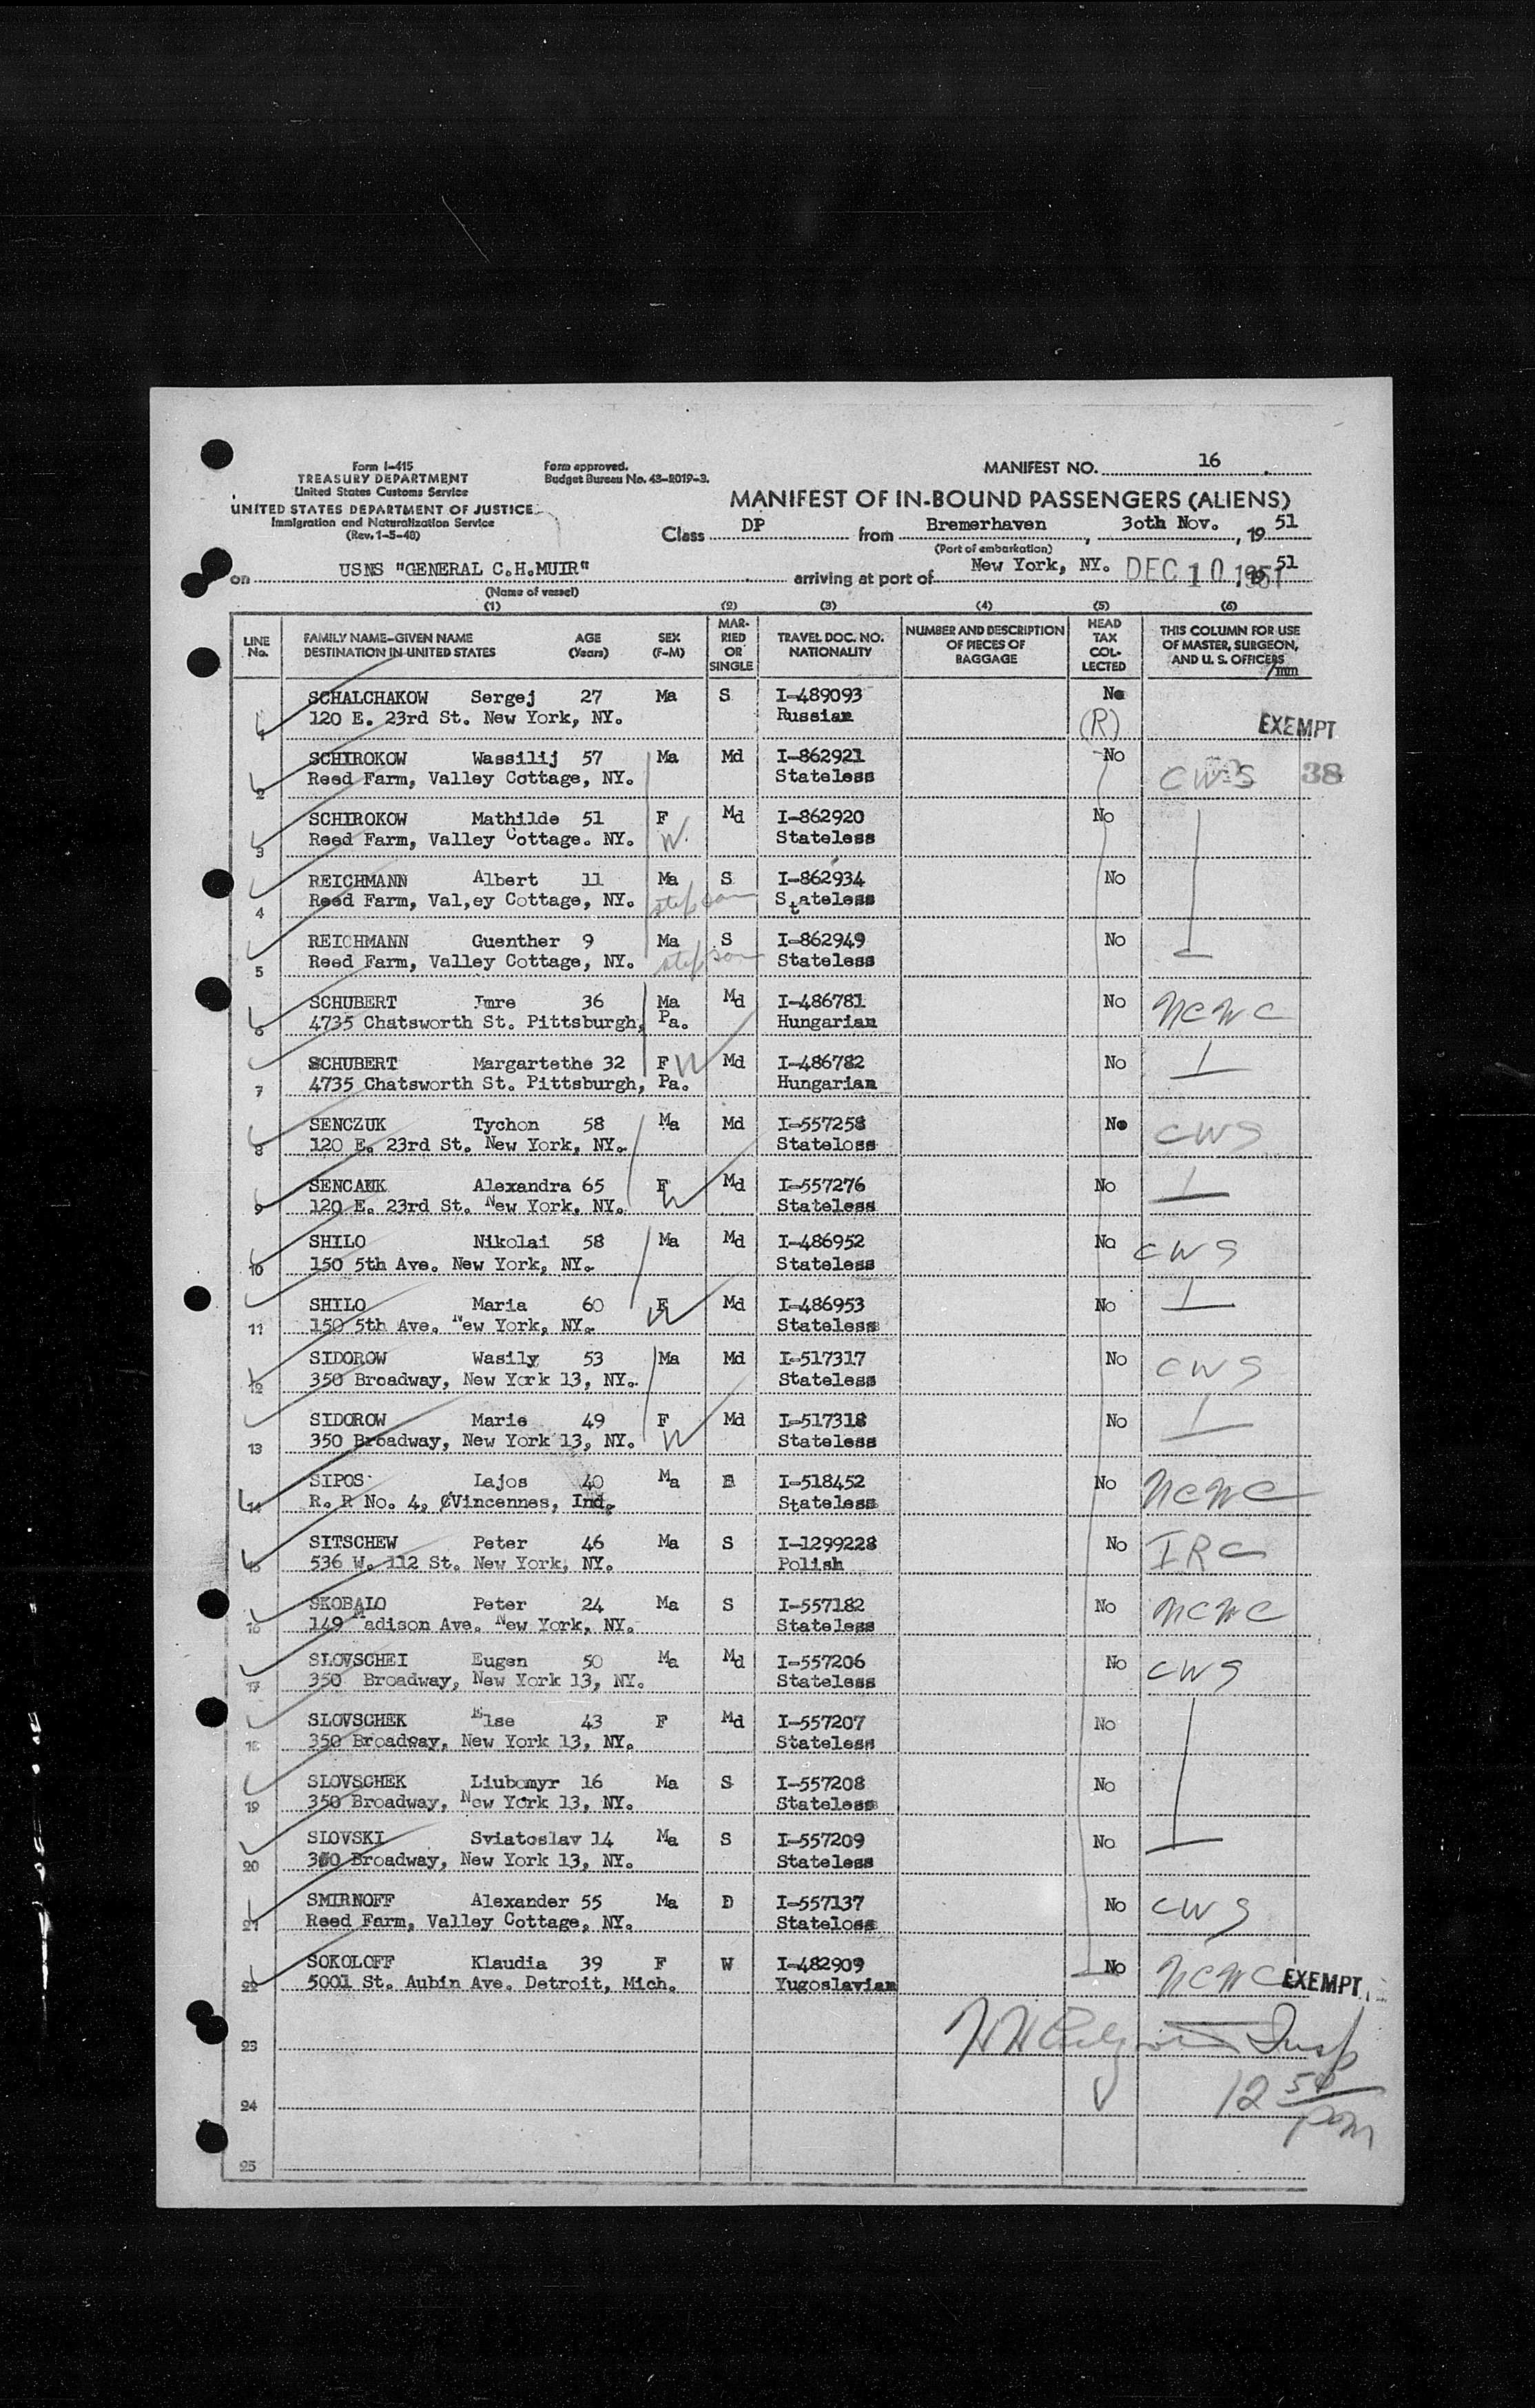 Form I-415
TREASURY DEPARTMENT
United States Customs Service
UNITED STATES DEPARTMENT OF JUSTICE
Immigration and Naturalization Service
(Rev. 1-5-48)
Form approved.
Budget Bureau No. 43-R019-3.
MANIFEST NO. 16
MANIFEST OF IN-BOUND PASSENGERS (ALIENS)
Class DP from Bremerhaven, 3oth Nov., 19 51
(Port of embarkation)
on USNS "GENERAL C.H.MUIR" arriving at port of New York, NY. DEC 10 1951 51
(Name of vessel)
(1) (2) (3) (4) (5) (6)
LINE No. FAMILY NAME-GIVEN NAME DESTINATION IN UNITED STATES AGE (Years) SEX (F-M) MARRIED OR SINGLE TRAVEL DOC. NO. NATIONALITY NUMBER AND DESCRIPTION OF PIECES OF BAGGAGE HEAD TAX COLLECTED THIS COLUMN FOR USE OF MASTER, SURGEON, AND U. S. OFFICERS
/mm
1 SCHALCHAKOW Sergej 27 Ma S I-489093 No
120 E. 23rd St. New York, NY. Russian (R) EXEMPT
2 SCHIROKOW Wassilij 57 Ma Md I-862921 No
Reed Farm, Valley Cottage, NY. Stateless CWS 38
3 SCHIROKOW Mathilde 51 F Md I-862920 No
Reed Farm, Valley Cottage. NY. W. Stateless
4 REICHMANN Albert 11 Ma S I-862934 No
Reed Farm, Val,ey Cottage, NY. step son Stateless
5 REICHMANN Guenther 9 Ma S I-862949 No
Reed Farm, Valley Cottage, NY. step son Stateless
6 SCHUBERT Jmre 36 Ma Md I-486781 No NCWC
4735 Chatsworth St. Pittsburgh, Pa. Hungarian
7 SCHUBERT Margartethe 32 F W Md I-486782 No
4735 Chatsworth St. Pittsburgh, Pa. Hungarian
8 SENCZUK Tychon 58 Ma Md I-557258 No CWS
120 E. 23rd St. New York, NY. Stateloss
9 SENCAUK Alexandra 65 F W Md I-557276 No
120 E. 23rd St. New York, NY. Stateless
10 SHILO Nikolai 58 Ma Md I-486952 No CWS
150 5th Ave. New York, NY. Stateless
11 SHILO Maria 60 F W Md I-486953 No
150 5th Ave. New York, NY. Stateless
12 SIDOROW Wasily 53 Ma Md I-517317 No CWS
350 Broadway, New York 13, NY. Stateless
13 SIDOROW Marie 49 F W Md I-517318 No
350 Broadway, New York 13, NY. Stateless
14 SIPOS Lajos 40 Ma I-518452 No NCWC
R. R No. 4, Vincennes, Ind. Stateless
15 SITSCHEW Peter 46 Ma S I-1299228 No IRC
536 W. 112 St. New York, NY. Polish
16 SKOBALO Peter 24 Ma S I-557182 No NCWC
149 Madison Ave. New York, NY. Stateless
17 SLOVSCHEI Eugen 50 Ma Md I-557206 No CWS
350 Broadway, New York 13, NY. Stateless
18 SLOVSCHEK Else 43 F Md I-557207 No
350 Broadway, New York 13, NY. Stateless
19 SLOVSCHEK Liubomyr 16 Ma S I-557208 No
350 Broadway, New York 13, NY. Stateless
20 SLOVSKI Sviatoslav 14 Ma S I-557209 No
350 Broadway, New York 13, NY. Stateless
21 SMIRNOFF Alexander 55 Ma D I-557137 No CWS
Reed Farm, Valley Cottage, NY. Stateloss
22 SOKOLOFF Klaudia 39 F W I-482909 No NCWC EXEMPT
5001 St. Aubin Ave. Detroit, Mich. Yugoslavian
23 Insp
24 12 50 pm
25